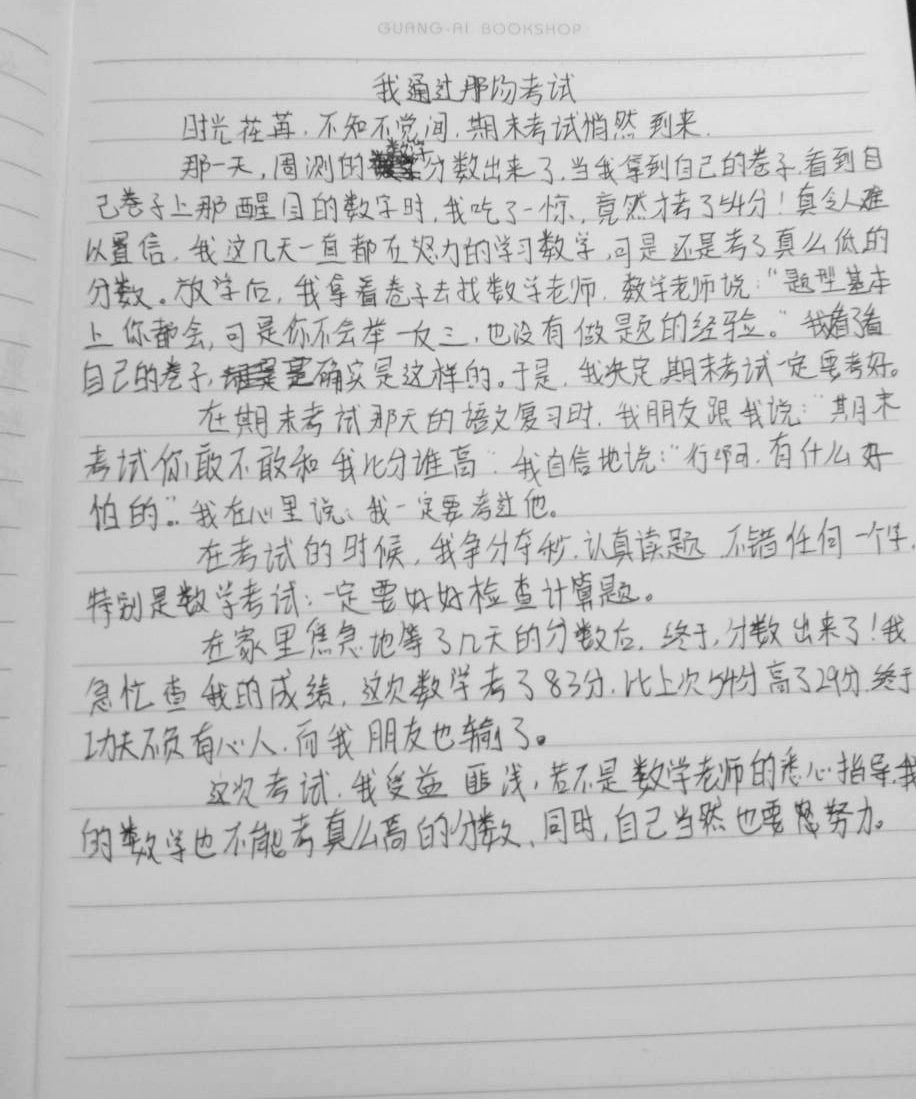 GUANG-AI BOOKSHOP
我通过那场考试
时光荏苒，不知不觉间，期末考试悄然到来。
那一天，周测的数学分数出来了，当我拿到自己的卷子，看到自
己卷子上那醒目的数字时，我吃了一惊，竟然才考了54分！真令人难
以置信，我这几天一直都在努力的学习数学，可是还是考了真么低的
分数。放学后，我拿着卷子去找数学老师，数学老师说：“题型基本
上你都会，可是你不会举一反三，也没有做题的经验。”我看了看
自己的卷子，确实是这样的。于是，我决定，期末考试一定要考好。
在期末考试那天的语文复习时，我朋友跟我说：“期末
考试你敢不敢和我比分谁高”我自信地说：“行啊，有什么好
怕的”。我在心里说、我一定要考过他。
在考试的时候，我争分夺秒，认真读题 不错任何一个字，
特别是数学考试：一定要好好检查计算题。
在家里焦急地等了几天的分数后，终于，分数出来了！我
急忙查我的成绩，这次数学考了83分，比上次54分高了29分，终于
功夫不负有心人，而我朋友也输了。
这次考试，我受益匪浅，若不是数学老师的悉心指导，我
的数学也不能考真么高的分数、同时，自己当然也要努力。